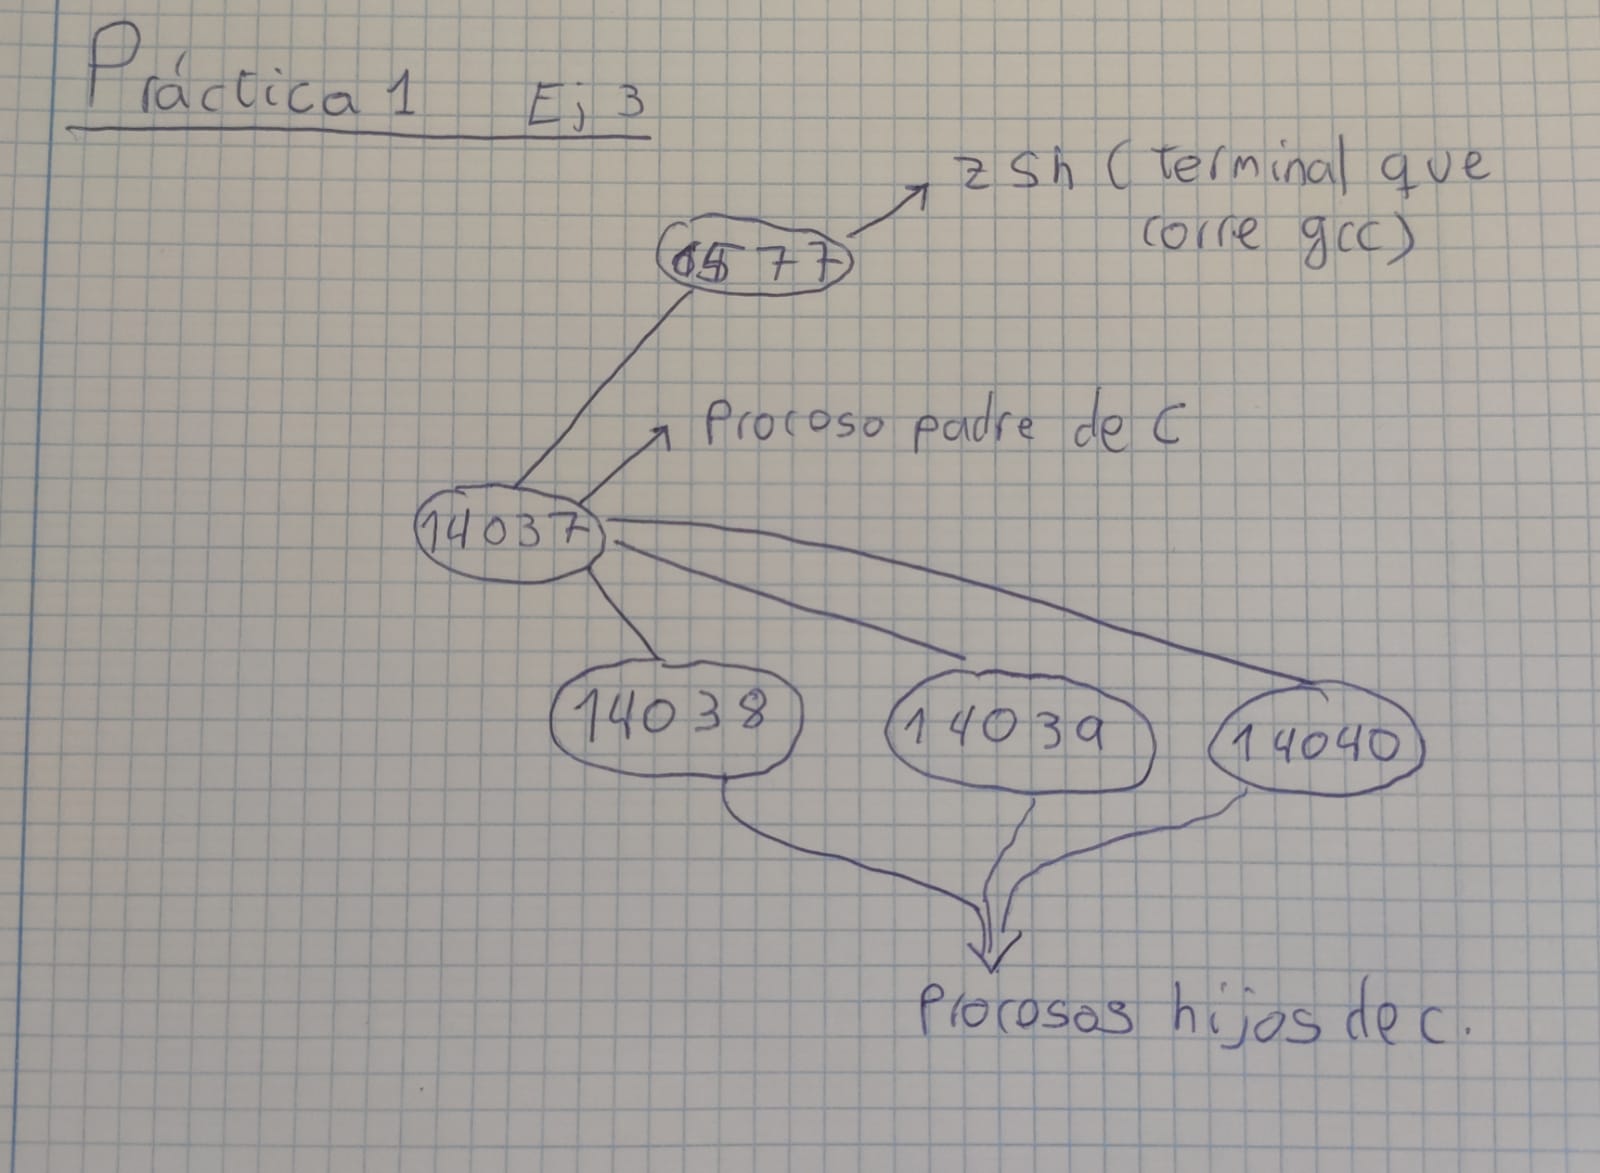 Práctica 1 Ej 3
zsh (terminal que
corre gcc)
Proceso padre de C
14037
14038
14039
14040
Procesos hijos de c.